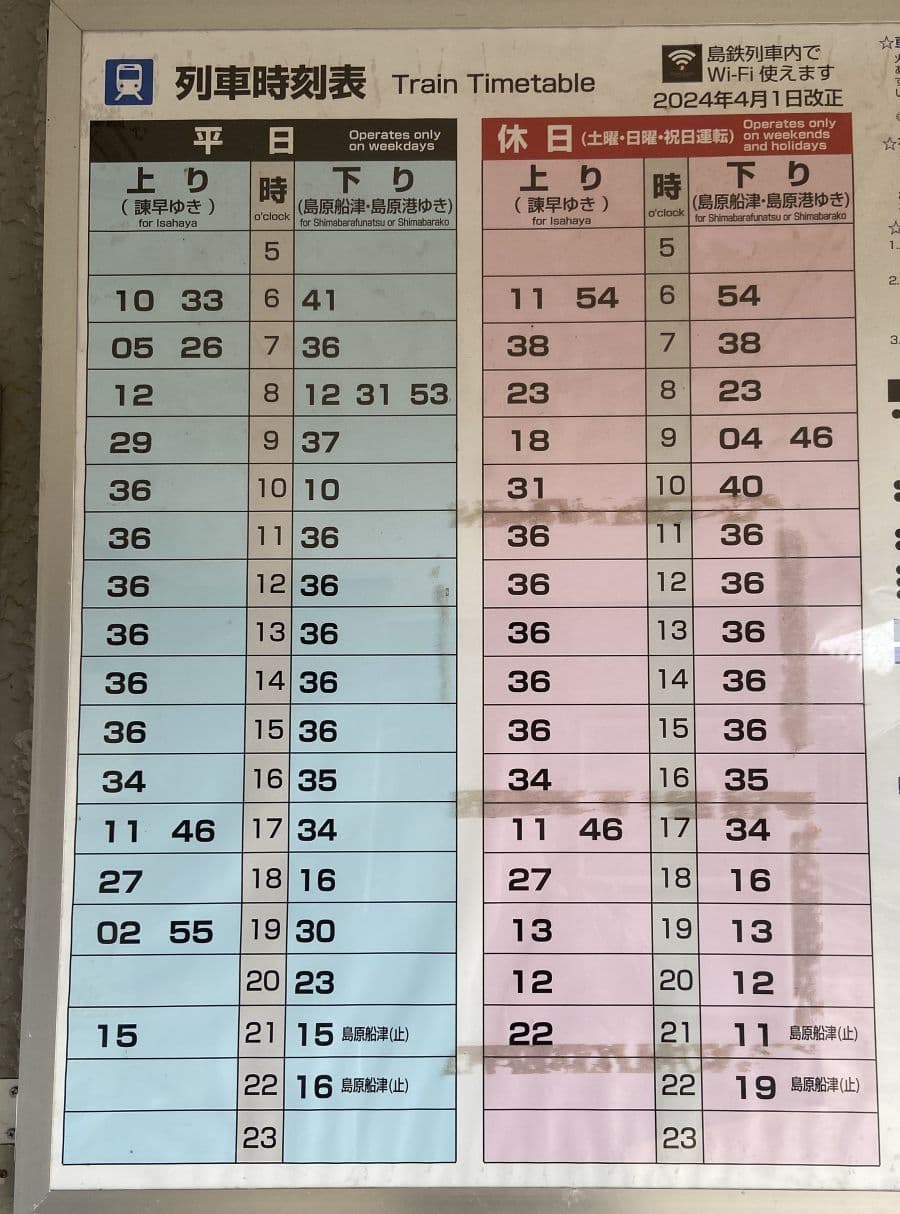 列車時刻表 Train Timetable
島鉄列車内で
Wi-Fi 使えます
2024年4月1日改正
平 日 Operates only
on weekdays
休 日 (土曜・日曜・祝日運転) Operates only
on weekends
and holidays
上り 時 下り 上り 時 下り
(諫早ゆき) (島原船津・島原港ゆき) (諫早ゆき) (島原船津・島原港ゆき)
for Isahaya o'clock for Shimabarafunatsu or Shimabarako for Isahaya o'clock for Shimabarafunatsu or Shimabarako
5 5
10 33 6 41 11 54 6 54
05 26 7 36 38 7 38
12 8 12 31 53 23 8 23
29 9 37 18 9 04 46
36 10 10 31 10 40
36 11 36 36 11 36
36 12 36 36 12 36
36 13 36 36 13 36
36 14 36 36 14 36
36 15 36 36 15 36
34 16 35 34 16 35
11 46 17 34 11 46 17 34
27 18 16 27 18 16
02 55 19 30 13 19 13
20 23 12 20 12
15 21 15 島原船津(止) 22 21 11 島原船津(止)
22 16 島原船津(止) 22 19 島原船津(止)
23 23
1.
2.
3.